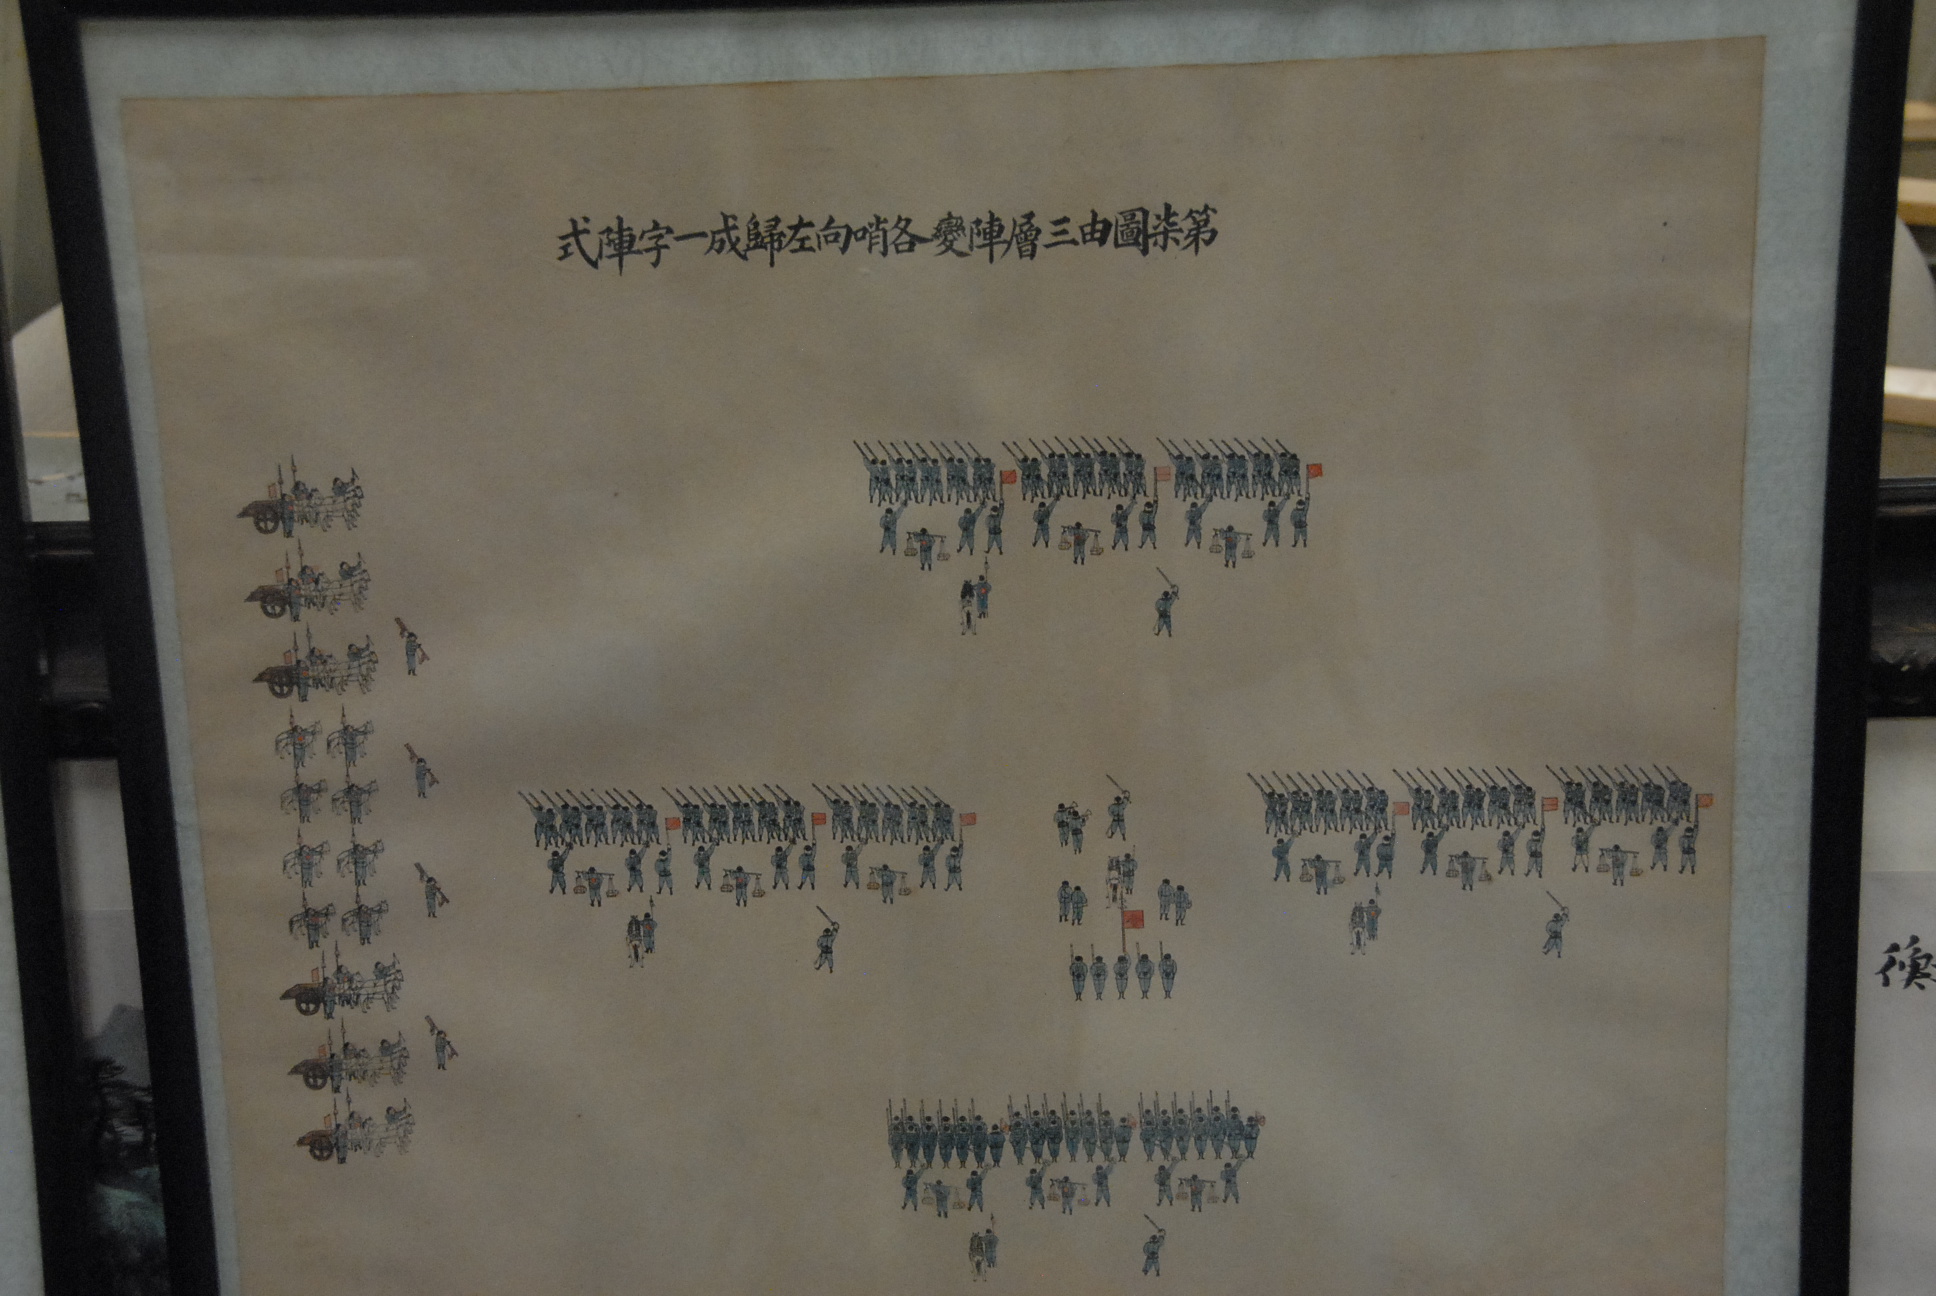 第柒圖由三層陣變各哨向左歸成一字陣式